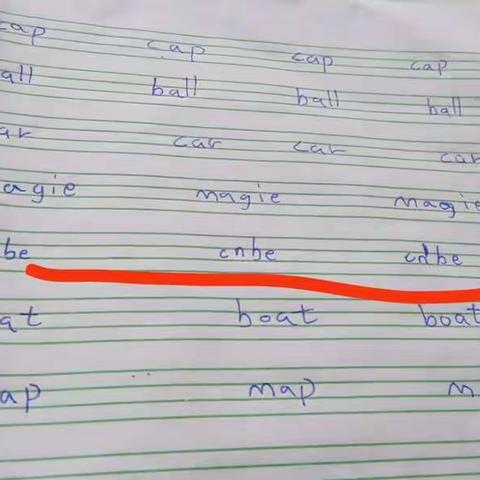 cap cap cap cap
all ball ball ball
ar car car car
agie magie magie
be cnbe cdbe
at boat boat
ap map m